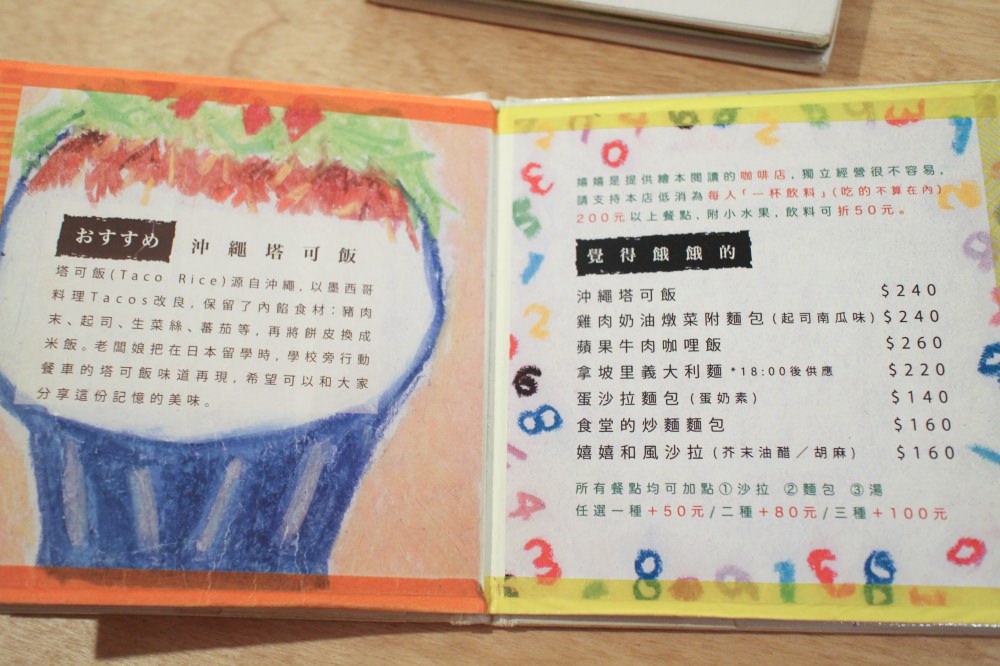 おすすめ 沖繩塔可飯
塔可飯(Taco Rice)源自沖繩,以墨西哥
料理Tacos改良,保留了內餡食材:豬肉
末、起司、生菜絲、蕃茄等,再將餅皮換成
米飯。老闆娘把在日本留學時,學校旁行動
餐車的塔可飯味道再現,希望可以和大家
分享這份記憶的美味。
嬉嬉是提供繪本閱讀的咖啡店,獨立經營很不容易,
請支持本店低消為每人「一杯飲料」(吃的不算在內)
200元以上餐點,附小水果,飲料可折50元。
覺得餓餓的
沖繩塔可飯 $240
雞肉奶油燉菜附麵包(起司南瓜味) $240
蘋果牛肉咖哩飯 $260
拿坡里義大利麵 *18:00後供應 $220
蛋沙拉麵包(蛋奶素) $140
食堂的炒麵麵包 $160
嬉嬉和風沙拉(芥末油醋／胡麻) $160
所有餐點均可加點①沙拉 ②麵包 ③湯
任選一種+50元/二種+80元/三種+100元